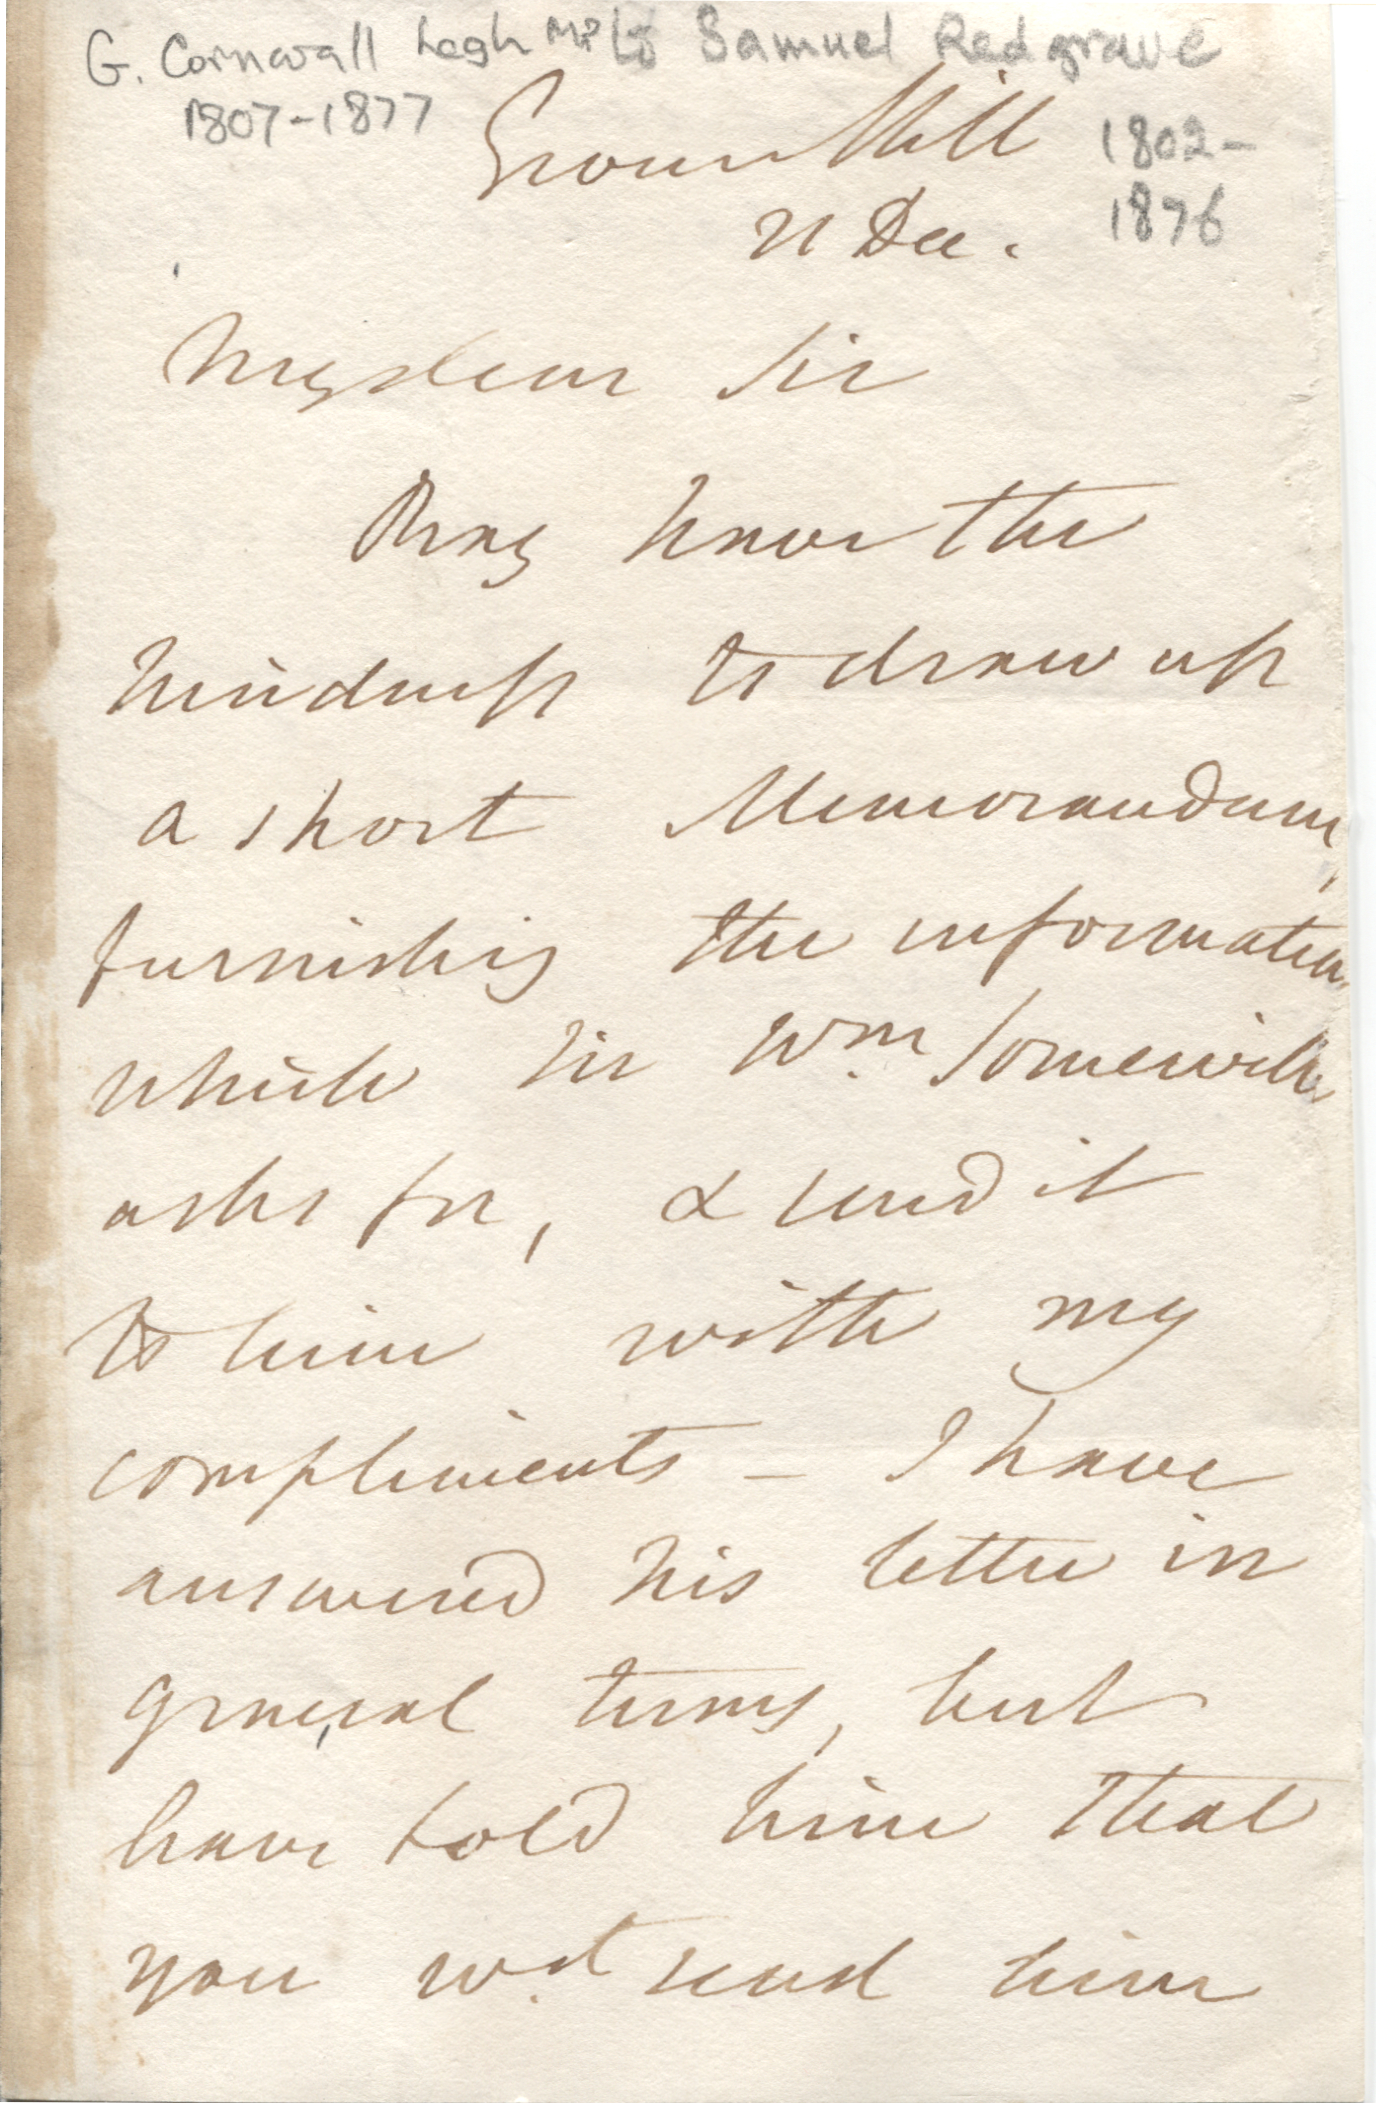 G. Cornwall Legh MP to Samuel Redgrave
1807-1877
1802-
1876
Grove Mill
21 Dec.
My dear Sir
Pray have the
kindness to draw up
a short Memorandum,
furnishing the information
which Sir Wm Somerville
asks for, & send it
to him with my
compliments - I have
answered his letter in
general terms, but
have told him that
you wd. send him